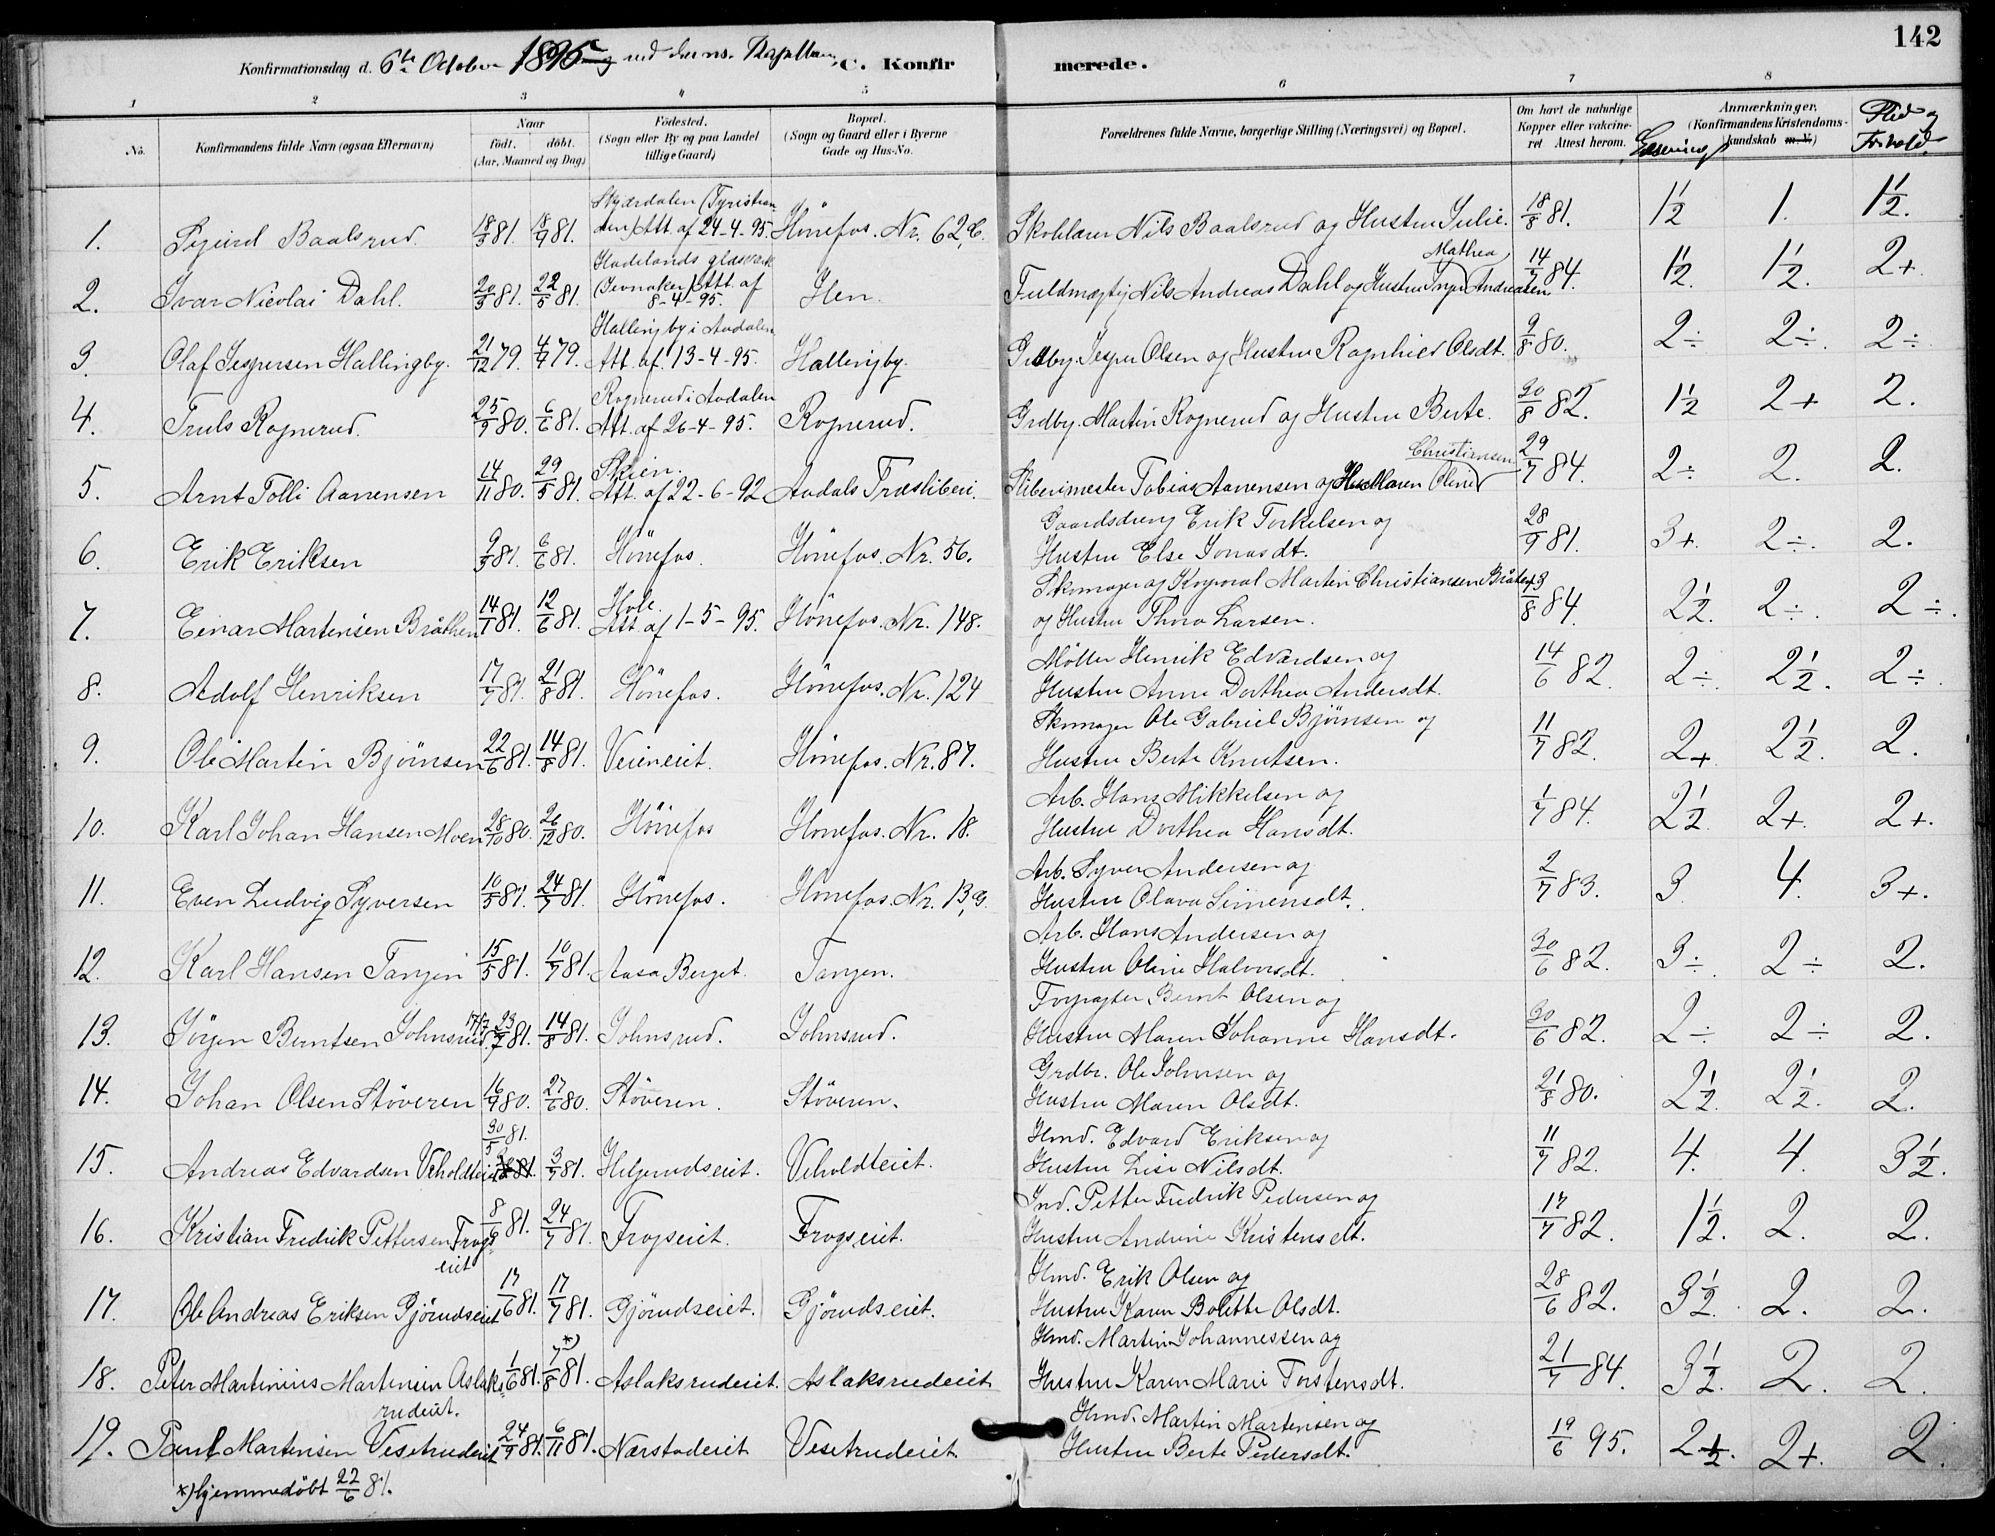 142
Konfirmationsdag d. 6te October 1895 ved
C. Konfirmerede.
1 2 3 " 5 6 7 8
No. Konfirmandens fulde Navn (ogsaa Efternavn) Naar født. døbt. (Aar, Maaned og Dag) Fødested. (Sogn eller By og paa Landet tillige Gaard) Bopæl. (Sogn og Gaard eller i Byerne Gade og Hus-No. Forældrenes fulde Navne, borgerlige Stilling (Næringsvei) og Bopæl. Om havt de naturlige Kopper eller vaccineret Attest herom. Anmærkninger. (Konfirmandens Kristendomskundskab m. V.) Flid og Forhold.
1. Sigurd Baalsrud. 18/3 81. 18/9 81. Skjærdalen (Tyristranden) Att. af 24-4-95. Hönefos. Nr. 62,c. Skolelærer Nils Baalsrud og Hustru Julie. 18/8 81. 1½ 1. 1½.
2. Ivar Nicolai Dahl. 20/3 81. 22/5 81. Hadelands glasværk (Jevnaker) Att. af 8-4-95. Hen. Fuldmægtig Nils Andreas Dahl og Hustru Inga Mathea Andreasen 14/7 84. 1½. 1½. 2+
3. Olaf Jespersen Hallingby. 21/12 79. 4/7 79. Hallingby i Aadalen Att. af 13-4-95. Hallingby. Grdbr. Jesper Olsen og Hustru Ragnhild Olsdt. 9/8 80. 2÷ 2÷. 2÷.
4. Truls Rognerud. 25/9 80. 6/6 81. Rognerud i Aadalen Att. af 26-4-95. Rognerud. Grdbr. Martin Rognerud og Hustru Berte. 30/8 82. 1½ 2+ 2.
5. Arnt Tolli Aanensen 14/11 80. 29/5 81. Skien. Att. af 22-6-92 Aadals Træsliberi. Sliberimester Tobias Aanensen og Hu. Maren Oline Christiansen 29/7 84. 2÷ 2. 2.
6. Erik Eriksen 9/3 81. 6/6 81. Hönefos. Hönefos. Nr. 56. Gaardsdreng Erik Torkelsen og
Hustru Else Jonasdt. 28/9 81. 3+. 2÷. 2.
7. Einar Martensen Bråthen 14/1 81. 12/6 81. Hole. Att. af 1-5-95. Hönefos. Nr. 148. Skomager og Korporal Martin Christiansen Bråten
og Hustru Thora Larsen. 13/8 84. 2½. 2÷. 2÷.
8. Adolf Henriksen 17/7 81. 21/8 81. Hönefos. Hönefos. Nr. 124 Møller Henrik Edvardsen og
Hustru Anne Dorthea Andersdt. 14/6 82. 2÷. 2½. 2÷.
9. Ole Martin Bjørnsen 22/6 81. 14/8 81. Veieneiet. Hönefos. Nr. 87. Skomager Ole Gabriel Bjørnsen og
Hustru Berte Knutsen. 11/7 82. 2+ 2½. 2.
10. Karl Johan Hansen Moen 28/10 80. 26/12 80. Hönefos Hönefos. Nr. 18. Arb. Hans Mikkelsen og
Hustru Dorthea Hansdt. 1/7 84. 2½. 2+. 2+.
11. Even Ludvig Syversen 10/5 81. 24/7 81. Hönefos. Hönefos. Nr. 13,g. Arb. Syver Andersen og
Hustru Olava Simensdt. 2/7 83. 3. 4. 3+.
12. Karl Hansen Tangen 15/5 81. 10/7 81. Aasa Berget. Tangen. Arb. Hans Andersen og
Hustru Oline Halvorsdt. 30/6 82. 3÷. 2÷ 2.
13. Jörgen Berntsen Johnsrud. 23/7 81. 14/8 81. Johnsrud. Johnsrud. Forpagter Bernt Olsen og
Hustru Maren Johanne Hansdt. 30/6 82. 2÷ 2÷ 2.
14. Johan Olsen Stöveren 16/9 80. 27/6 80. Stöveren. Stöveren. Grdbr. Ole Johnsen og
Hustru Maren Olsdt. 21/8 80. 2½. 2½. 2.
15. Andreas Edvardsen Veholdteiet 30/5 81. 3/7 81. Helgerudseiet. Veholdteiet. Hmd. Edvard Eriksen og
Hustru Lise Nilsdt. 11/7 82. 4. 4. 3½.
16. Kristian Fredrik Pettersen Frogseiet 8/6 81. 24/7 81. Frogseiet. Frogseiet. Ind. Petter Fredrik Pedersen og
Hustru Andrine Kristensdt. 17/7 82. 1½. 2. 2.
17. Ole Andreas Eriksen Gjörudseiet 17/6 81. 17/7 81. Gjörudseiet. Gjörudseiet. Hmd. Erik Olsen og
Hustru Karen Bolette Olsdt. 28/6 82. 3½. 2. 2.
18. Peter Martinius Martinsen Aslaksrudeiet. 1/6 81. *) 7/8 81. Aslaksrudeiet. Aslaksrudeiet Hmd. Martin Johannessen og
Hustru Karen Marie Torstensdt. 21/7 84. 3½. 2. 2.
19. Paul Martensen Vesetrudeiet 24/9 81. 6/11 81. Nærstadeiet Vesetrudeiet. Hmd. Martin Martensen og
Hustru Berte Pedersdt. 19/6 95. 2½. 2+. 2.
*) Hjemmedöbt 22/6 81.